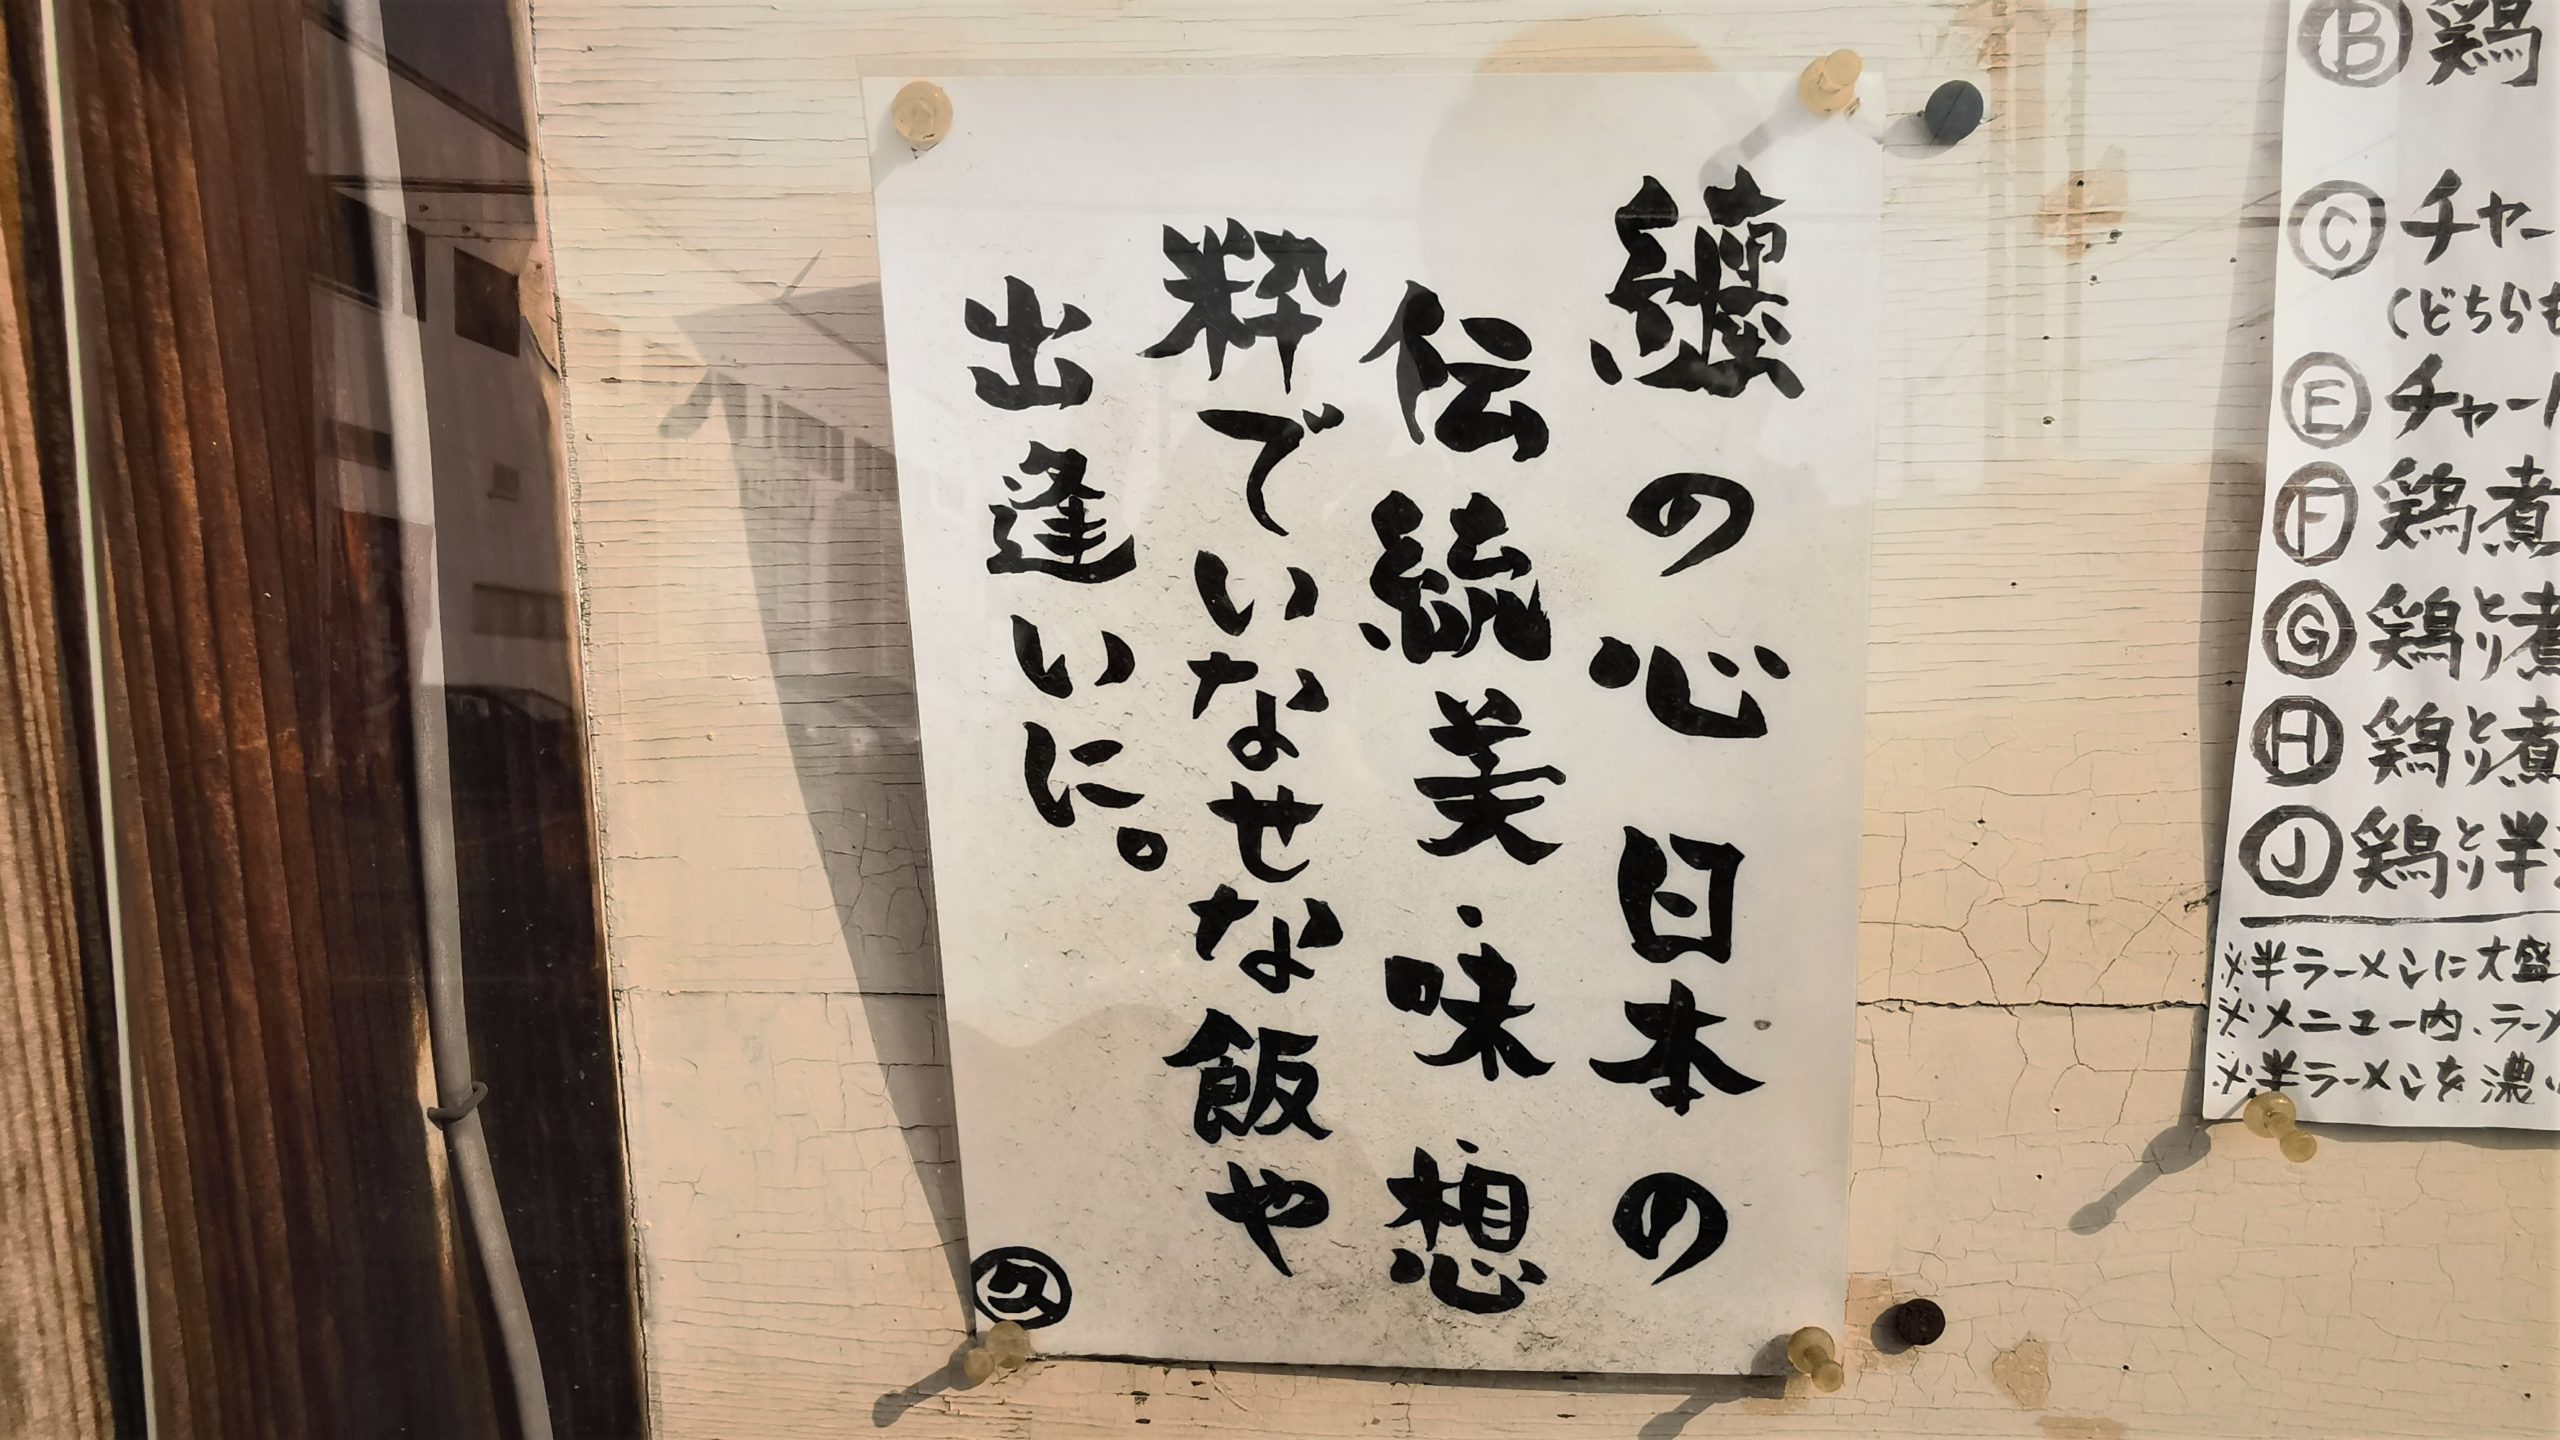 纏の心 日本の
伝統美・味・想
粋でいなせな飯や
出逢いに。
Ⓑ鶏
Ⓒチャー
(どちらも
Ⓔチャー
Ⓕ鶏煮
Ⓖ鶏とり煮
Ⓗ鶏とり煮
Ⓙ鶏とり半
※半ラーメンに大盛
※メニュー内、ラーメ
※半ラーメンを濃い